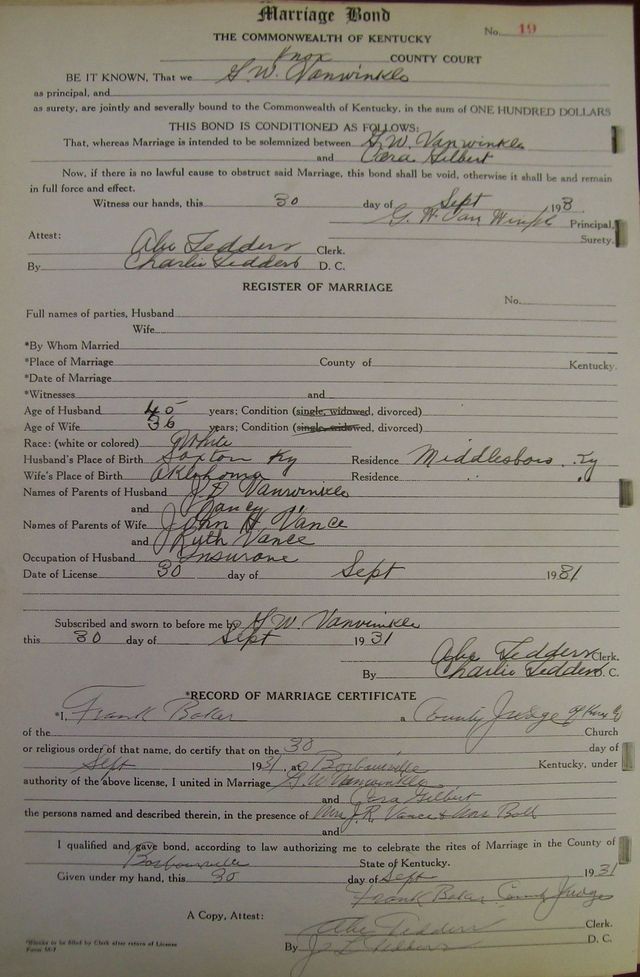 Marriage Bond
No. 19
THE COMMONWEALTH OF KENTUCKY
Knox COUNTY COURT
BE IT KNOWN, That we G. W. Vanwinkle
as principal, and
as surety, are jointly and severally bound to the Commonwealth of Kentucky, in the sum of ONE HUNDRED DOLLARS
THIS BOND IS CONDITIONED AS FOLLOWS:
That, whereas Marriage is intended to be solemnized between G. W. Vanwinkle
and Cora Gilbert
Now, if there is no lawful cause to obstruct said Marriage, this bond shall be void, otherwise it shall be and remain
in full force and effect.
Witness our hands, this 30 day of Sept 193
G. W. Van Winkle Principal,
Surety.
Attest:
Abe Tedders Clerk.
By Charlie Tedders D. C.
REGISTER OF MARRIAGE
No.
Full names of parties, Husband
Wife
*By Whom Married
*Place of Marriage County of Kentucky.
*Date of Marriage
*Witnesses and
Age of Husband 45 years; Condition (single, widowed, divorced)
Age of Wife 36 years; Condition (single, widowed, divorced)
Race: (white or colored) White
Husband's Place of Birth Saxton Ky Residence Middlesboro, Ky
Wife's Place of Birth Oklahoma Residence
Names of Parents of Husband J. D. Vanwinkle
and Nancy "
Names of Parents of Wife John H. Vance
and Ruth Vance
Occupation of Husband Insurane
Date of License 30 day of Sept 1931
Subscribed and sworn to before me by G. W. Vanwinkle
this 30 day of Sept 1931
Abe Tedders Clerk.
By Charlie Tedders D. C.
*RECORD OF MARRIAGE CERTIFICATE
*I, Frank Baker a County Judge of Knox Co
of the Church
or religious order of that name, do certify that on the 30 day of
Sept 1931, at Barbourville Kentucky, under
authority of the above license, I united in Marriage G. W. Vanwinkle
and Cora Gilbert
the persons named and described therein, in the presence of Mrs J. R. Vance &
and
I qualified and gave bond, according to law authorizing me to celebrate the rites of Marriage in the County of
Barbourville State of Kentucky.
Given under my hand, this 30 day of Sept 1931
Frank Baker County Judge
A Copy, Attest: Abe Tedders Clerk.
By D. C.
*Blanks to be filled by Clerk after return of License